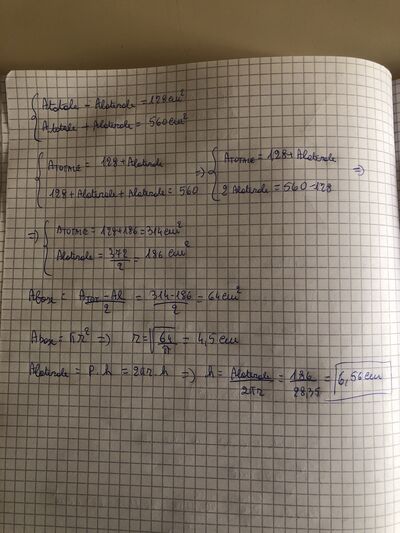 { Atotale - Alaterale = 128 cm²
{ Atotale + Alaterale = 560 cm²
{ ATOTALE = 128 + Alaterale => { ATOTALE = 128 + Alaterale =>
{ 128 + Alaterale + Alaterale = 560 { 2 Alaterale = 560 - 128
=> { ATOTALE = 128 + 186 = 314 cm²
{ Alaterale = 372/2 = 186 cm²
Abase = ATOT - Al/2 = 314 - 186/2 = 64 cm²
Abase = πr² => r = √64/π = 4,5 cm
Alaterale = P. h = 2πr. h => h = Alaterale/2πr = 186/28,35 = 6,56 cm